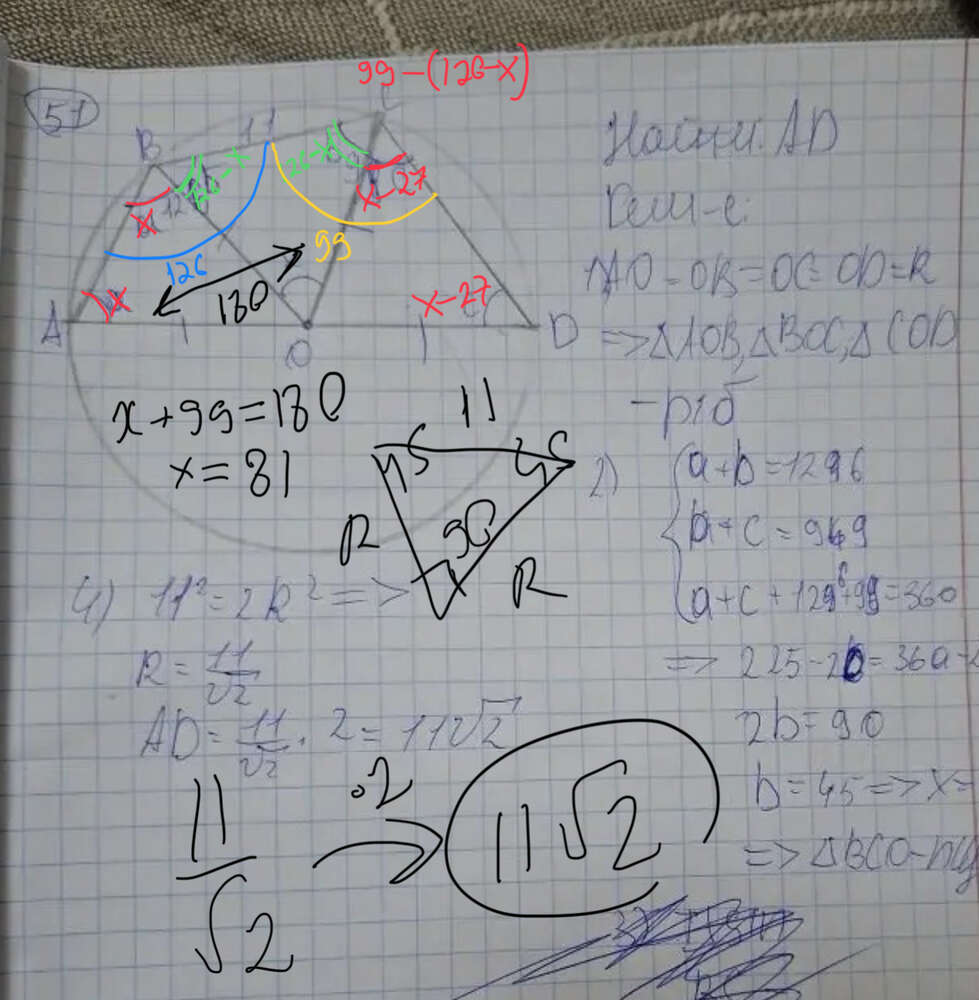 51
99-(126-x)
B 11 C
126-x
x-27
x
126
99
180
x
x-27
A O D
Найти: AD
Реш-е:
1) AO=OB=OC=OD=R
=> △AOB, △BOC, △COD
- р/б
x+99=180
x=81
11
45 45
90
R R
2) a+b=126
b+c=99
a+c+126+99=360
=> 225-2b=360-2
2b=90
b=45 => x=
=> △BCO-
4) 11²=2R² =>
R= 11/√2
AD= 11/√2 · 2 = 11√2
11/√2 ·2 → 11√2